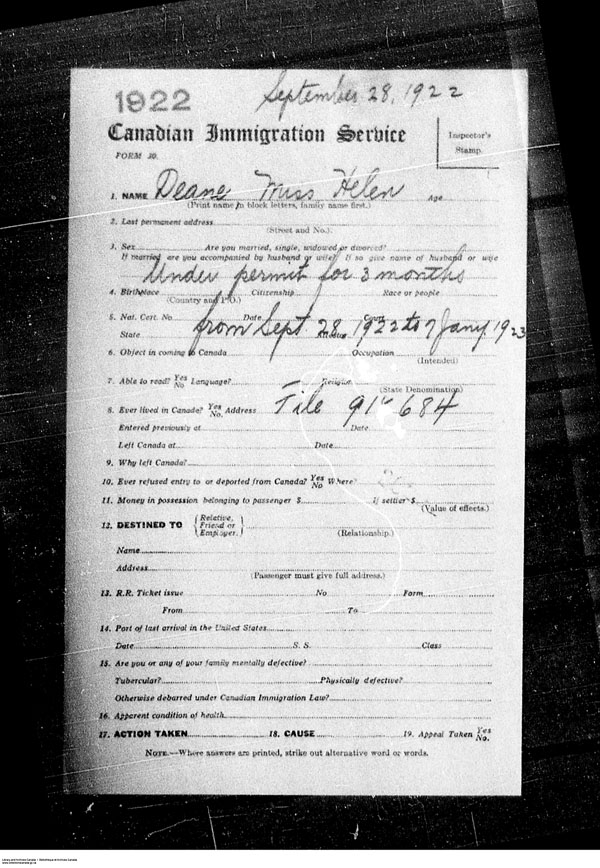 September 28, 1922
1922
Canadian Immigration Service
Inspector's
Stamp.
FORM 30.
1. NAME Deane Miss Helen Age
(Print name in block letters, family name first.)
2. Last permanent address
(Street and No.)
3. Sex Are you married, single, widowed or divorced?
If married are you accompanied by husband or wife? If so give name of husband or wife
Under permit for 3 months
4. Birthplace Citizenship Race or people
(Country and P.O.)
5. Nat. Cert. No. Date
from Sept 28, 1922 to 7 Jany. 1923
State
6. Object in coming to Canada Occupation
(Intended)
7. Able to read? Yes No Language? Religion
(State Denomination)
8. Ever lived in Canada? Yes No. Address File 91-684
Entered previously at Date
Left Canada at Date
9. Why left Canada?
10. Ever refused entry to or deported from Canada? Yes No Where?
11. Money in possession belonging to passenger $ If settler $
(Value of effects.)
12. DESTINED TO { Relative, Friend or Employer. }
(Relationship.)
Name
Address
(Passenger must give full address.)
13. R.R. Ticket issue No Form
From To
14. Port of last arrival in the United States
Date S. S. Class
15. Are you or any of your family mentally defective?
Tubercular? Physically defective?
Otherwise debarred under Canadian Immigration Law?
16. Apparent condition of health
17. ACTION TAKEN 18. CAUSE 19. Appeal Taken Yes No.
NOTE.—Where answers are printed, strike out alternative word or words.